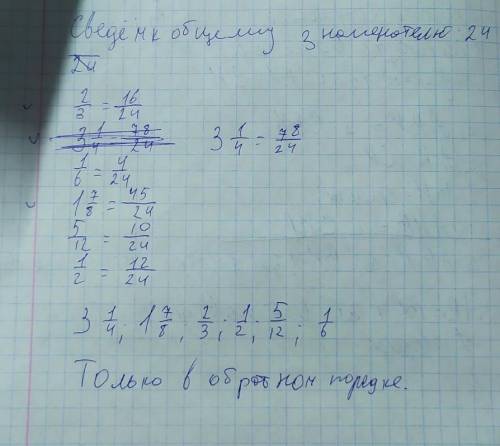 Сведём к общему знаменателю 24
24
2/3 = 16/24
3 1/4 = 78/24
1/6 = 4/24
1 7/8 = 45/24
5/12 = 10/24
1/2 = 12/24
3 1/4; 1 7/8; 2/3; 1/2; 5/12; 1/6
Только в обратном порядке.